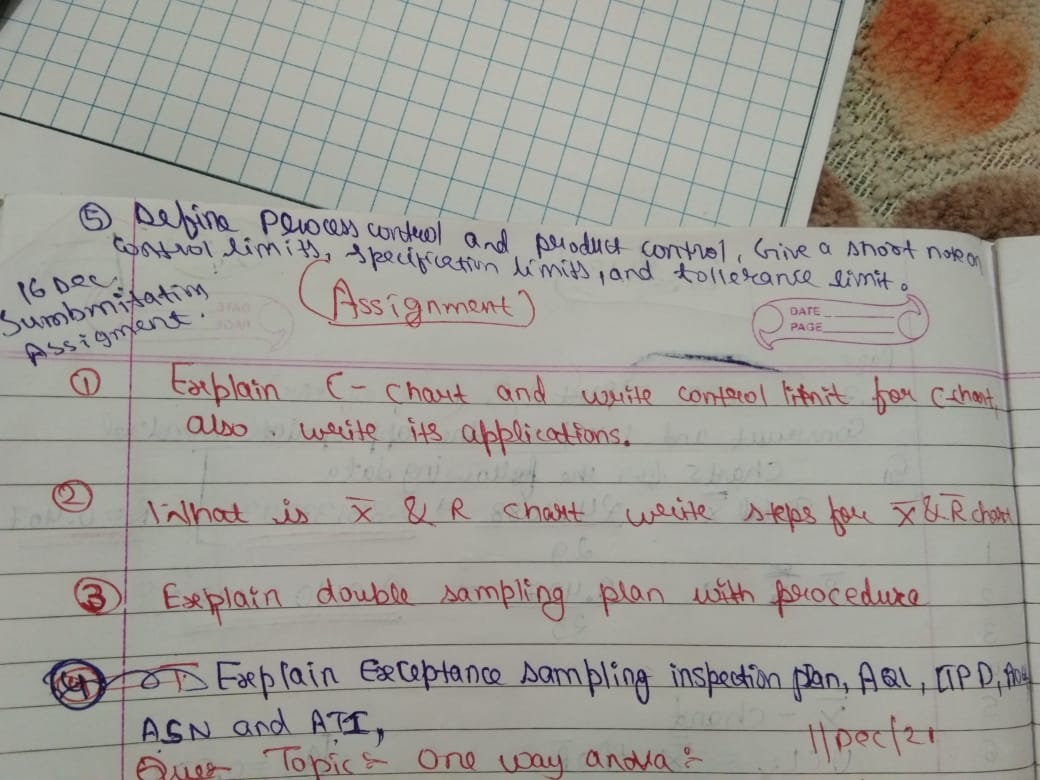 ⑤ Define Process control and product control, Give a shoot note on
control limits, specification limits, and tollerance limit.
16 Dec.
Sumbmitation
Assigment.
(Assignment)
DATE
PAGE
① Explain C- chart and write control limit for C-chart,
also. write its applications.
② What is x̅ & R chart write steps for x̅ & R̅ chart
③ Explain double sampling plan with procedure
④ Explain Exceptance sampling inspection plan, AQL, LTPD,
ASN and ATI,
11/Dec/21
Ques- Topic:- One way anova:-